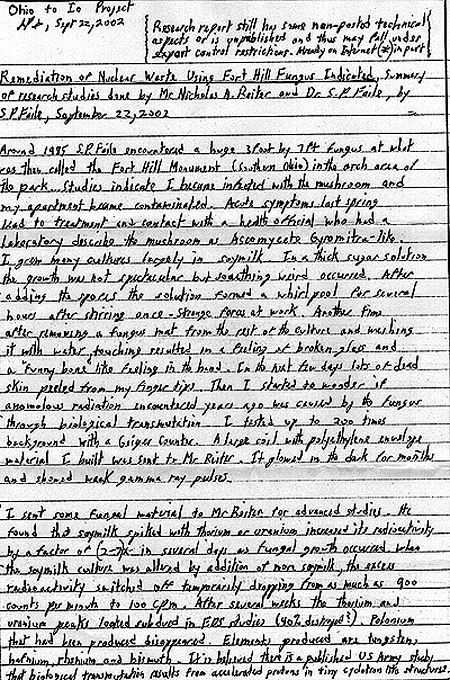 Ohio to Io Project
Sept 22, 2002
Research report still has some non-posted technical
aspects or is unpublished and thus may fall under
export control restrictions. Already on Internet (*) in part
Remediation of Nuclear Waste Using Fort Hill Fungus Indicated, Summary
of research studies done by Mr. Nicholas A. Reiter and Dr. S.P. Faile, by
S.P. Faile, September 22, 2002
Around 1985 S.P. Faile encountered a huge 3 foot by 7 ft fungus at what
was then called the Fort Hill Monument (Southern Ohio) in the arch area of
the park. Studies indicate I became infected with the mushroom and
my apartment became contaminated. Acute symptoms last spring
lead to treatment and contact with a health official who had a
laboratory describe the mushroom as Ascomycete Gyromitra-like.
I grew many cultures largely in soymilk. In a thick sugar solution
the growth was not spectacular but something weird occurred. After
adding the spores the solution formed a whirlpool for several
hours after stirring once - strange force at work. Another time
after removing a fungus mat from the rest of the culture and washing
it with water, touching resulted in a feeling of broken glass and
a "funny bone" like feeling in the hand. In the next few days lots of dead
skin peeled from my finger tips. Then I started to wonder if
anomolous radiation encountered years ago was caused by the fungus
through biological transmutation. I tested up to 200 times
background with a Geiger counter. A large coil with polyethylene envelope
material I built was sent to Mr. Reiter. It glowed in the dark for months
and showed weak gamma ray pulses.
I sent some fungal material to Mr Reiter for advanced studies. He
found that soymilk spiked with thorium or uranium increased its radioactivity
by a factor of (2-7)x in several days as fungal growth occurred. When
the soymilk culture was altered by addition of more soymilk, the excess
radioactivity switched off temporarily dropping from as much as 900
counts per minute to 100 cpm. After several weeks the thorium and
uranium peaks looked subdued in EDS studies (90% destroyed?). Polonium
that had been produced disappeared. Elements produced are tungsten,
hafnium, rhenium and bismuth. It is believed there is a published US Army study
that biological transmutation results from accelerated protons in tiny cyclotron like structures.